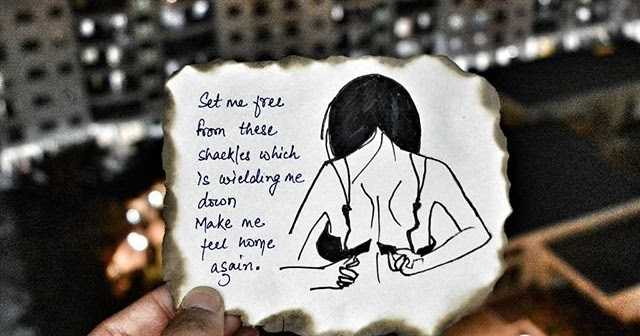 Set me free
from these
shackles which
is wielding me
down
Make me
feel home
again.